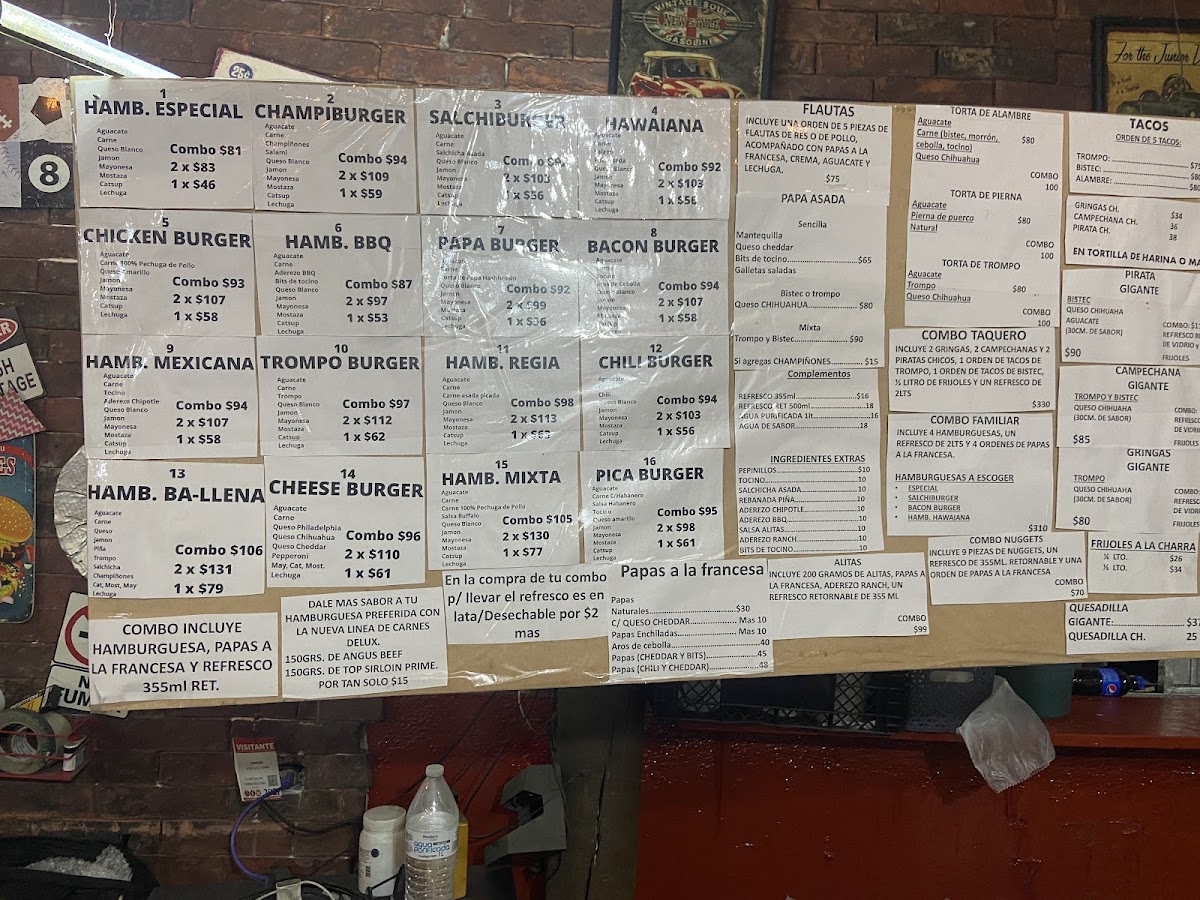 VINTAGE SOUL
NEW STYLE
GASOLINE
For the Junior
25¢
8
1
HAMB. ESPECIAL
Aguacate
Carne
Queso Blanco
Jamon
Mayonesa
Mostaza
Catsup
Lechuga
Combo $81
2 x $83
1 x $46
2
CHAMPIBURGER
Aguacate
Carne
Champiñones
Salami
Queso Blanco
Jamon
Mayonesa
Mostaza
Catsup
Lechuga
Combo $94
2 x $109
1 x $59
3
SALCHIBURGER
Aguacate
Carne
Salchicha Asada
Queso Blanco
Jamon
Mayonesa
Mostaza
Catsup
Lechuga
Combo
2 x $103
1 x $56
4
HAWAIANA
Aguacate
Carne
Jamon
Mayonesa
Mostaza
Catsup
Lechuga
Combo $92
2 x $103
1 x $56
5
CHICKEN BURGER
Aguacate
Carne 100% Pechuga de Pollo
Queso Amarillo
Jamon
Mayonesa
Mostaza
Catsup
Lechuga
Combo $93
2 x $107
1 x $58
6
HAMB. BBQ
Aguacate
Carne
Aderezo BBQ
Bits de tocino
Queso Blanco
Jamon
Mayonesa
Mostaza
Catsup
Lechuga
Combo $87
2 x $97
1 x $53
7
PAPA BURGER
Aguacate
Carne
Torta de Papa Hashbrown
Queso Blanco
Jamon
Mayonesa
Mostaza
Catsup
Lechuga
Combo $92
2 x $99
1 x $56
8
BACON BURGER
Aros de Cebolla
Queso Blanco
Jamon
Mayonesa
Mostaza
Catsup
Lechuga
Combo $94
2 x $107
1 x $58
9
HAMB. MEXICANA
Aguacate
Carne
Tocino
Aderezo Chipotle
Queso Blanco
Jamon
Mayonesa
Mostaza
Catsup
Lechuga
Combo $94
2 x $107
1 x $58
10
TROMPO BURGER
Aguacate
Carne
Trompo
Queso Blanco
Jamon
Mayonesa
Mostaza
Catsup
Lechuga
Combo $97
2 x $112
1 x $62
11
HAMB. REGIA
Aguacate
Carne
Carne asada picada
Queso Blanco
Jamon
Mayonesa
Mostaza
Catsup
Lechuga
Combo $98
2 x $113
1 x $63
12
CHILI BURGER
Aguacate
Carne
Chili
Queso Blanco
Jamon
Mayonesa
Mostaza
Catsup
Lechuga
Combo $94
2 x $103
1 x $56
13
HAMB. BA-LLENA
Aguacate
Carne
Queso
Jamon
Piña
Trompo
Salchicha
Champiñones
Cat, Most, May
Lechuga
Combo $106
2 x $131
1 x $79
14
CHEESE BURGER
Aguacate
Carne
Queso Philadelphia
Queso Chihuahua
Queso Cheddar
Pepperoni
May, Cat, Most.
Lechuga
Combo $96
2 x $110
1 x $61
15
HAMB. MIXTA
Aguacate
Carne
Carne 100% Pechuga de Pollo
Salsa Buffalo
Queso Blanco
Jamon
Mayonesa
Mostaza
Catsup
Lechuga
Combo $105
2 x $130
1 x $77
16
PICA BURGER
Aguacate
Carne C/Habanero
Salsa Habanero
Tocino
Queso amarillo
Jamon
Mayonesa
Mostaza
Catsup
Lechuga
Combo $95
2 x $98
1 x $61
COMBO INCLUYE
HAMBURGUESA, PAPAS A
LA FRANCESA Y REFRESCO
355ml RET.
DALE MAS SABOR A TU
HAMBURGUESA PREFERIDA CON
LA NUEVA LINEA DE CARNES
DELUX.
150GRS. DE ANGUS BEEF
150GRS. DE TOP SIRLOIN PRIME.
POR TAN SOLO $15
En la compra de tu combo
p/ llevar el refresco es en
lata/Desechable por $2
mas
Papas a la francesa
Papas
Naturales...$30
C/ QUESO CHEDDAR...Mas 10
Papas Enchiladas...Mas 10
Aros de cebolla...40
Papas (CHEDDAR Y BITS)...45
Papas (CHILI Y CHEDDAR)...48
FLAUTAS
INCLUYE UNA ORDEN DE 5 PIEZAS DE
FLAUTAS DE RES O DE POLLO,
ACOMPAÑADO CON PAPAS A LA
FRANCESA, CREMA, AGUACATE Y
LECHUGA.
$75
PAPA ASADA
Sencilla
Mantequilla
Queso cheddar
Bits de tocino...$65
Galletas saladas
Bistec o trompo
Queso CHIHUAHUA...$80
Mixta
Trompo y Bistec...$90
Si agregas CHAMPIÑONES...$15
Complementos
REFRESCO 355ml...$16
REFRESCO RET 500ml...18
AGUA PURIFICADA 1lt...16
AGUA DE SABOR...18
INGREDIENTES EXTRAS
PEPINILLOS...$10
TOCINO...10
SALCHICHA ASADA...10
REBANADA PIÑA...10
ADEREZO CHIPOTLE...10
ADEREZO BBQ...10
SALSA ALITAS...10
ADEREZO RANCH...10
BITS DE TOCINO...10
ALITAS
INCLUYE 200 GRAMOS DE ALITAS, PAPAS A
LA FRANCESA, ADEREZO RANCH, UN
REFRESCO RETORNABLE DE 355 ML
COMBO
$99
TORTA DE ALAMBRE
Aguacate
Carne (bistec, morrón,
cebolla, tocino)
Queso Chihuahua
$80
COMBO
100
TORTA DE PIERNA
Aguacate
Pierna de puerco
Natural
$80
COMBO
100
TORTA DE TROMPO
Aguacate
Trompo
Queso Chihuahua
$80
COMBO
100
COMBO TAQUERO
INCLUYE 2 GRINGAS, 2 CAMPECHANAS Y 2
PIRATAS CHICOS, 1 ORDEN DE TACOS DE
TROMPO, 1 ORDEN DE TACOS DE BISTEC,
½ LITRO DE FRIJOLES Y UN REFRESCO DE
2LTS
$330
COMBO FAMILIAR
INCLUYE 4 HAMBURGUESAS, UN
REFRESCO DE 2LTS Y 4 ORDENES DE PAPAS
A LA FRANCESA.
HAMBURGUESAS A ESCOGER
• ESPECIAL
• SALCHIBURGER
• BACON BURGER
• HAMB. HAWAIANA
$310
COMBO NUGGETS
INCLUYE 9 PIEZAS DE NUGGETS, UN
REFRESCO DE 355ML. RETORNABLE Y UNA
ORDEN DE PAPAS A LA FRANCESA
COMBO
$70
TACOS
ORDEN DE 5 TACOS:
TROMPO:
BISTEC:
ALAMBRE:
GRINGAS CH. $34
CAMPECHANA CH. 36
PIRATA CH. 38
EN TORTILLA DE HARINA O
PIRATA
GIGANTE
BISTEC
QUESO CHIHUAHA
AGUACATE
(30CM. DE SABOR)
$90
COMBO:
REFRESCO
DE VIDRIO y
FRIJOLES
CAMPECHANA
GIGANTE
TROMPO Y BISTEC
QUESO CHIHUAHA
(30CM. DE SABOR)
$85
COMBO:
REFRESC
DE VIDRI
FRIJOLES
GRINGAS
GIGANTE
TROMPO
QUESO CHIHUAHA
(30CM. DE SABOR)
$80
COMBO:
REFRESC
DE VIDR
FRIJOLES
FRIJOLES A LA CHARRA
¼ LTO. $26
½ LTO. $34
QUESADILLA
GIGANTE:
QUESADILLA CH. 25
VISITANTE
agua
purificada
1L